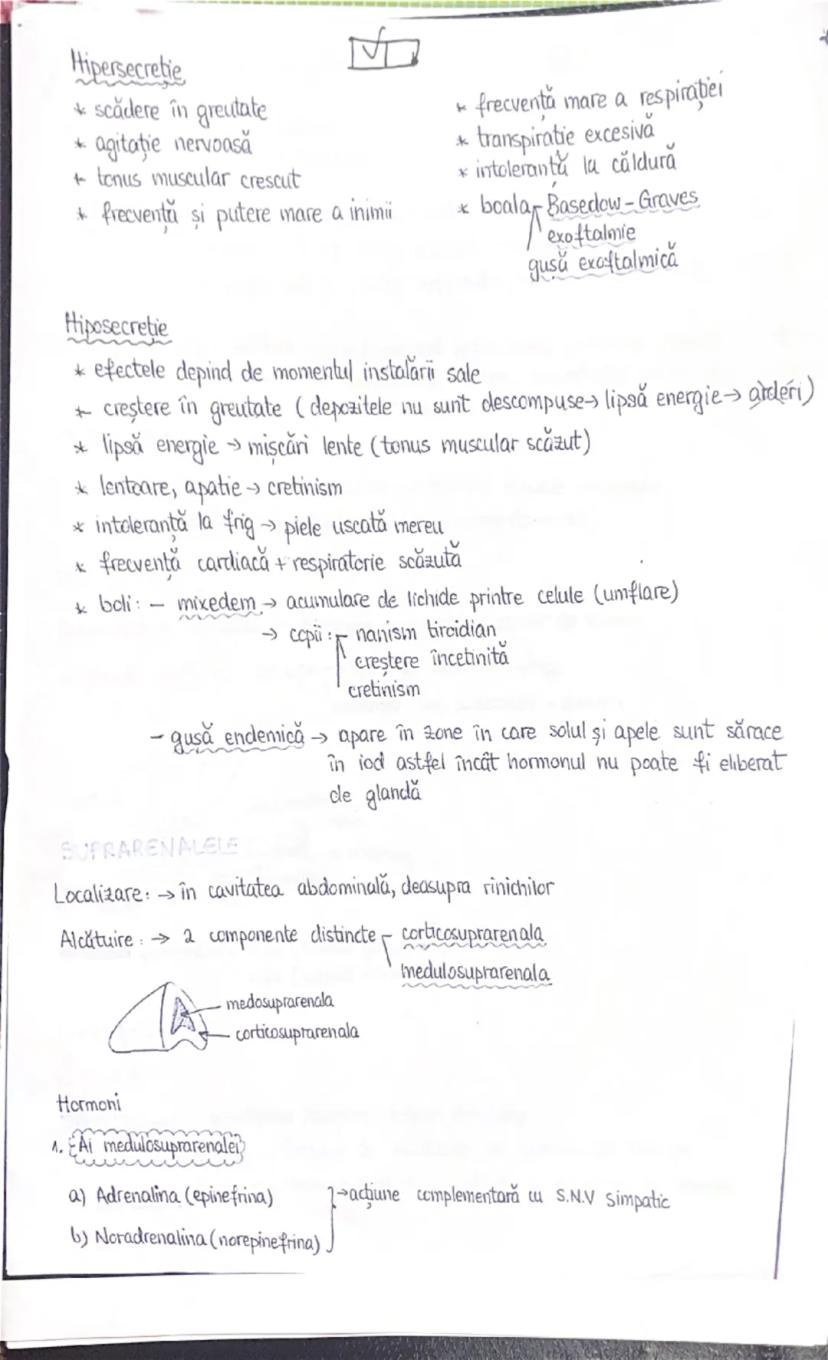 Hipersecreție
* scădere în greutate
* agitație nervoasă
* tonus muscular crescut
* frecvență și putere mare a inimii
* frecvență mare a respirației
* transpiratie excesivă
* intoleranță la căldură
* boala Basedow-Graves
exoftalmie
gușă exoftalmică
Hiposecreție
* efectele depind de momentul instalării sale
* creștere în greutate (depozitele nu sunt descompuse→ lipsă energie→ arderi)
* lipsă energie → mișcări lente (tonus muscular scăzut)
* lentoare, apatie → cretinism
* intoleranță la frig → piele uscată mereu
* frecvență cardiacă + respiratorie scăzută
* boli: - mixedem → acumulare de lichide printre celule (umflare)
→ copii: - nanism tiroidian
creștere încetinită
cretinism
- gușă endemică → apare în zone în care solul și apele sunt sărace
în iod astfel încât hormonul nu poate fi eliberat
de glandă
SUPRARENALELE
Localizare: → în cavitatea abdominală, deasupra rinichilor
Alcătuire: → 2 componente distincte - corticosuprarenala
medulosuprarenala
medosuprarenala
corticosuprarenala
Hormoni
1. Ai medulosuprarenalei
a) Adrenalina (epinefrina)
→acțiune complementară cu S.N.V simpatic
b) Noradrenalina (norepinefrina)